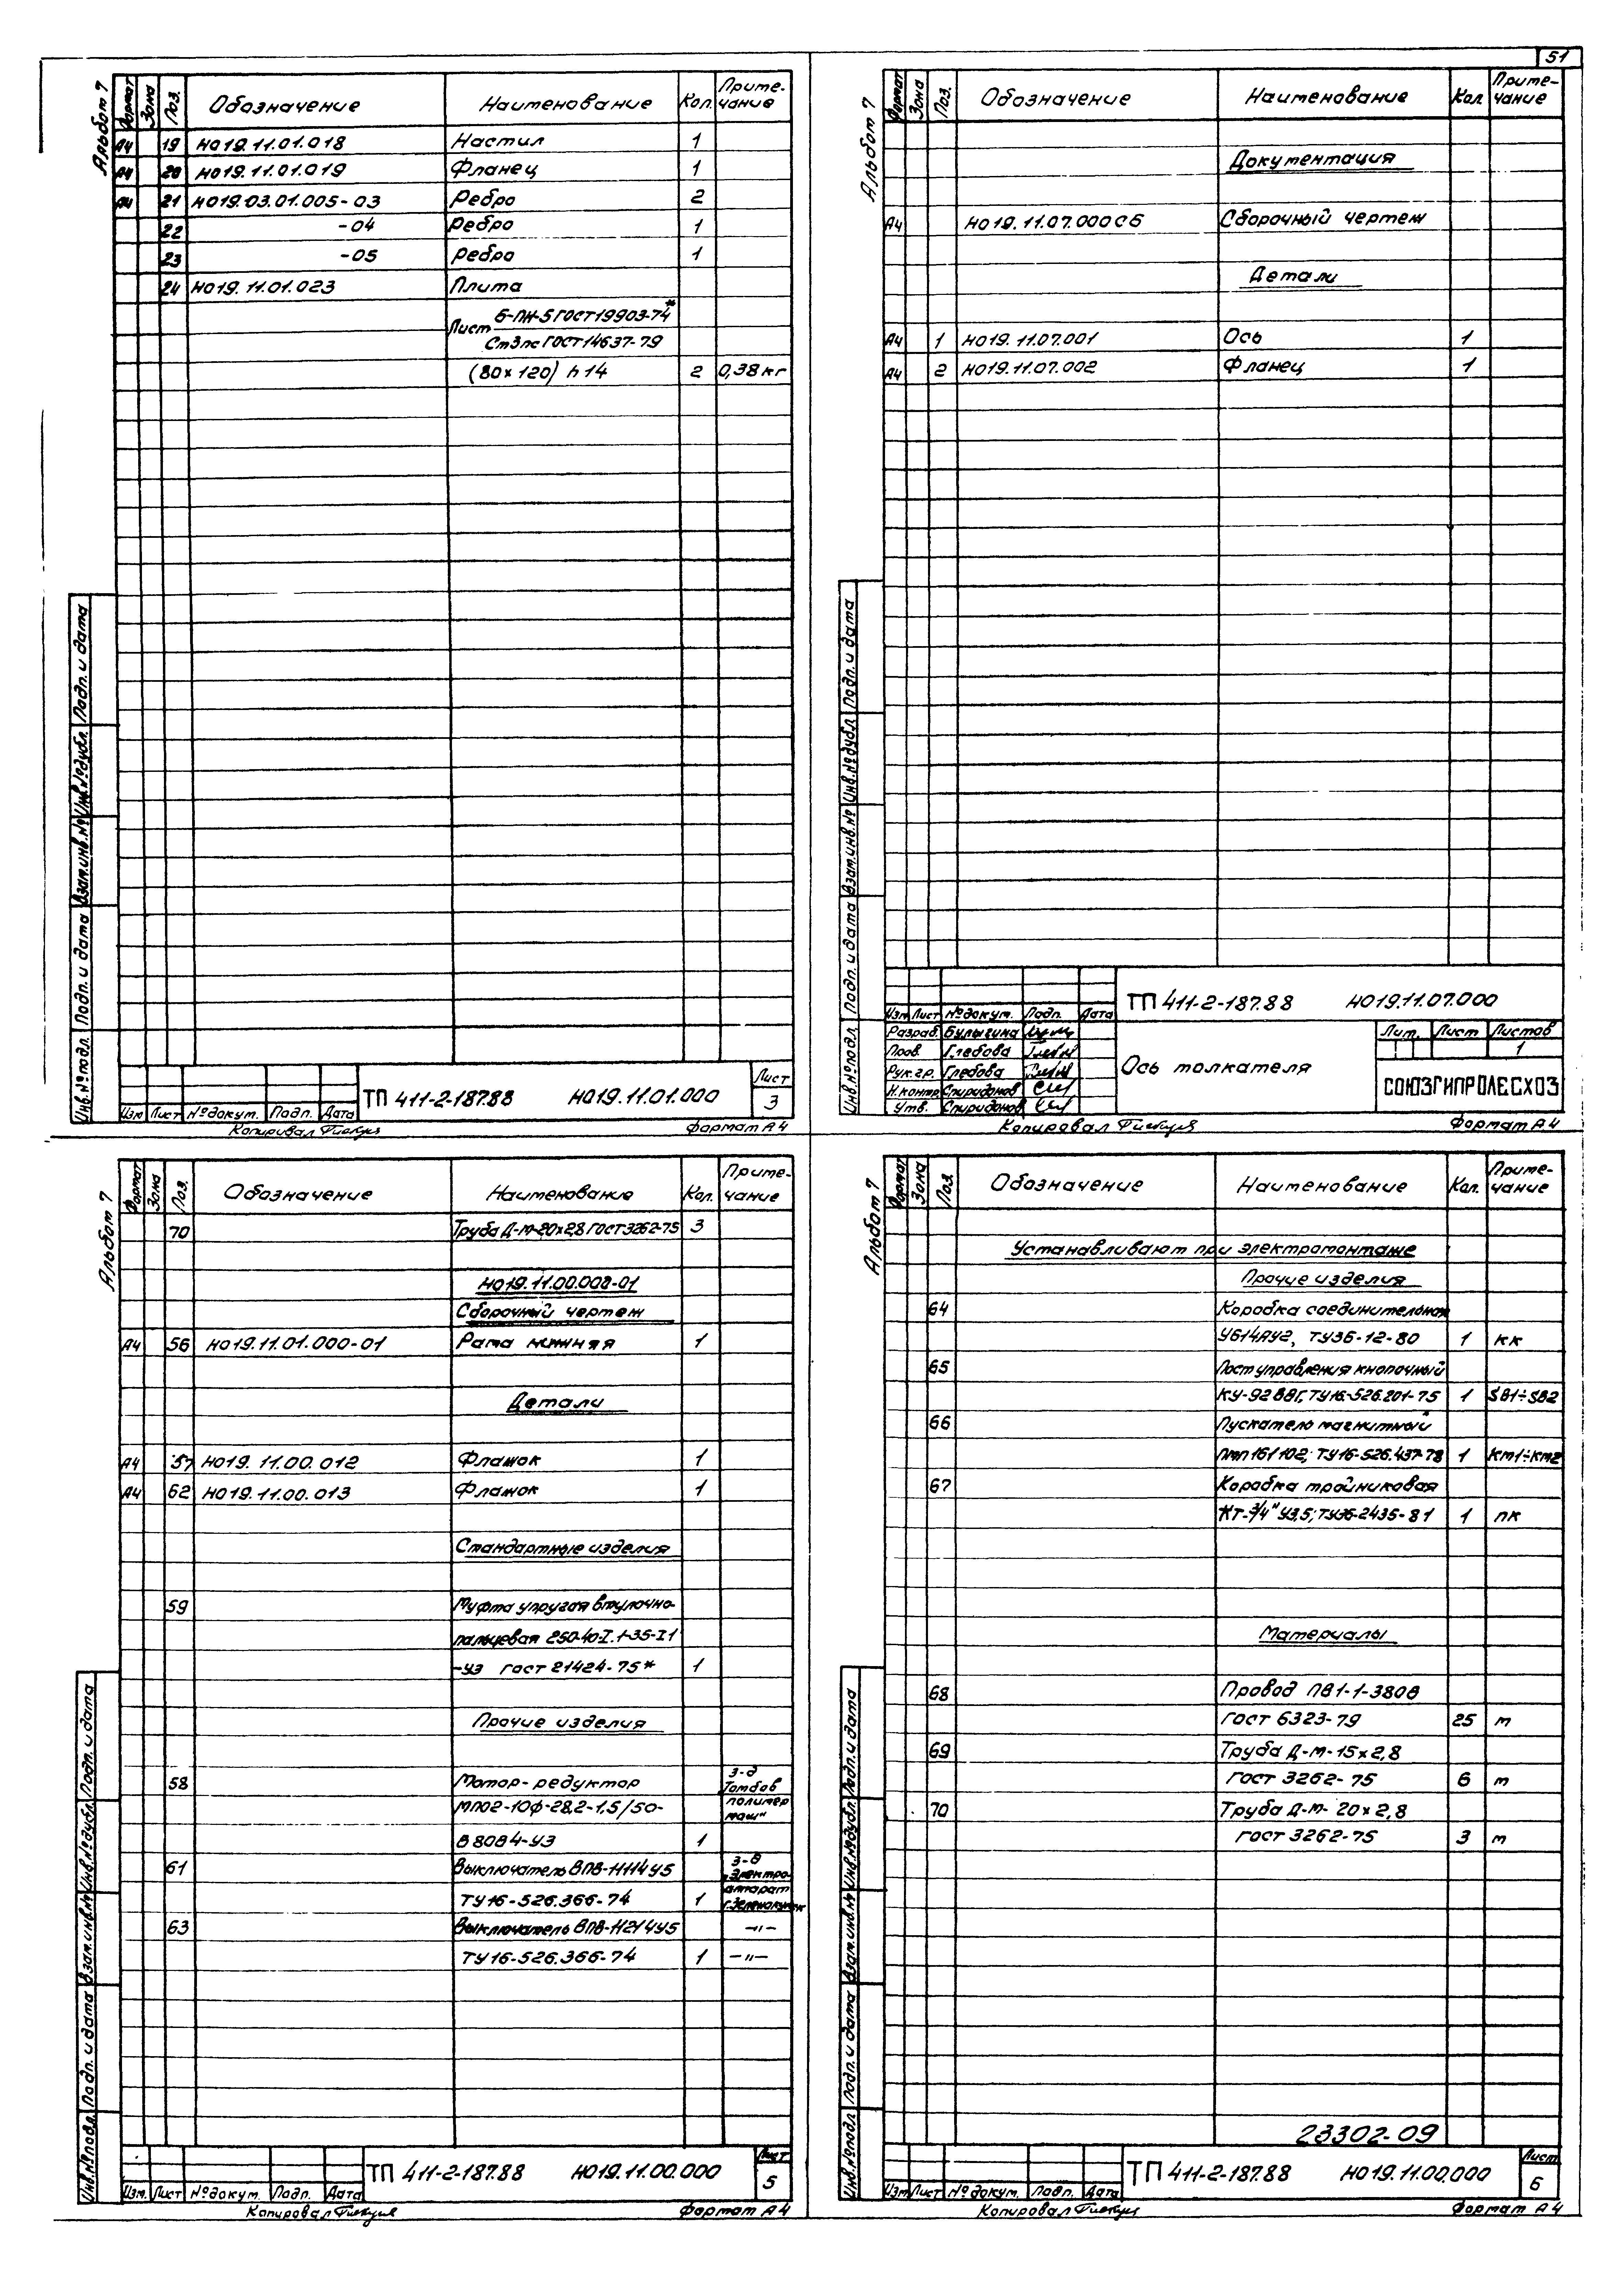 51
Альбом 7
Формат Зона Поз. Обозначение Наименование Кол. Приме-чание
А4 19 НО19.11.01.018 Настил 1
А4 20 НО19.11.01.019 Фланец 1
А4 21 НО19.03.01.005-03 Ребро 2
22 -04 Ребро 1
23 -05 Ребро 1
24 НО19.11.01.023 Плита
Лист 6-ПН-5 ГОСТ 19903-74*
Ст3пс ГОСТ 14637-79
(80х120) h14 2 0,38 кг
Инв.№ подл. Подп. и дата Взам.инв.№ Инв.№ дубл. Подп. и дата
Изм Лист № докум. Подп. Дата
ТП 411-2-187.88 НО19.11.01.000
Лист
3
Копировал
Формат А4
Альбом 7
Формат Зона Поз. Обозначение Наименование Кол Приме-чание
Документация
А4 НО19.11.07.000СБ Сборочный чертеж
Детали
А4 1 НО19.11.07.001 Ось 1
А4 2 НО19.11.07.002 Фланец 1
Инв.№ подл. Подп. и дата Взам.инв.№ Инв.№ дубл. Подп. и дата
ТП 411-2-187.88 НО19.11.07.000
Изм Лист № докум. Подп. Дата
Разраб. Булыгина
Пров. Глебова
Рук.гр. Глебова
Н.контр. Спиридонов
Утв. Спиридонов
Ось толкателя
Лит. Лист Листов
1
СОЮЗГИПРОЛЕСХОЗ
Копировал
Формат А4
Альбом 7
Формат Зона Поз. Обозначение Наименование Кол. Приме-чание
70 Труба Д-М-20х2,8 ГОСТ 3262-75 3
НО19.11.00.000-01
Сборочный чертеж
А4 56 НО19.11.01.000-01 Рама нижняя 1
Детали
А4 57 НО19.11.00.012 Флажок 1
А4 62 НО19.11.00.013 Флажок 1
Стандартные изделия
59 Муфта упругая втулочно-
пальцевая 250-40-I.1-35-I1
-У3 ГОСТ 21424-75* 1
Прочие изделия
58 Мотор-редуктор з-д
МПО2-10Ф-28,2-1,5/50- Тамбов
полимер
маш"
В80В4-У3 1
61 Выключатель ВПВ-1111У5 з-д
"Электро
ТУ16-526.366-74 1 аппарат
63 Выключатель ВПВ-1121У5 -"-
ТУ16-526.366-74 1 -"-
Инв.№ подл. Подп. и дата Взам.инв.№ Инв.№ дубл. Подп. и дата
Изм. Лист № докум. Подп. Дата
ТП 411-2-187.88 НО19.11.00.000
Лист
5
Копировал
Формат А4
Альбом 7
Формат Зона Поз. Обозначение Наименование Кол. Приме-чание
Устанавливают при электромонтаже
Прочие изделия
64 Коробка соединительная
У614АУ2, ТУ36-12-80 1 КК
65 Пост управления кнопочный
ТУ16-526.201-75 1 SB1÷SB2
66 Пускатель магнитный
ПМЛ161102; ТУ16-526.437-78 1 КМ1÷КМ2
67 Коробка тройниковая
КТ-3/4" У3,5; ТУ36-2435-81 1 ПК
Материалы
68 Провод ПВ1-1-380В
ГОСТ 6323-79 25 м
69 Труба Д-М-15х2,8
ГОСТ 3262-75 6 м
70 Труба Д-М-20х2,8
ГОСТ 3262-75 3 м
23302-09
Инв.№ подл. Подп. и дата Взам.инв.№ Инв.№ дубл. Подп. и дата
Изм Лист № докум. Подп. Дата
ТП 411-2-187.88 НО19.11.00.000
Лист
6
Копировал
Формат А4